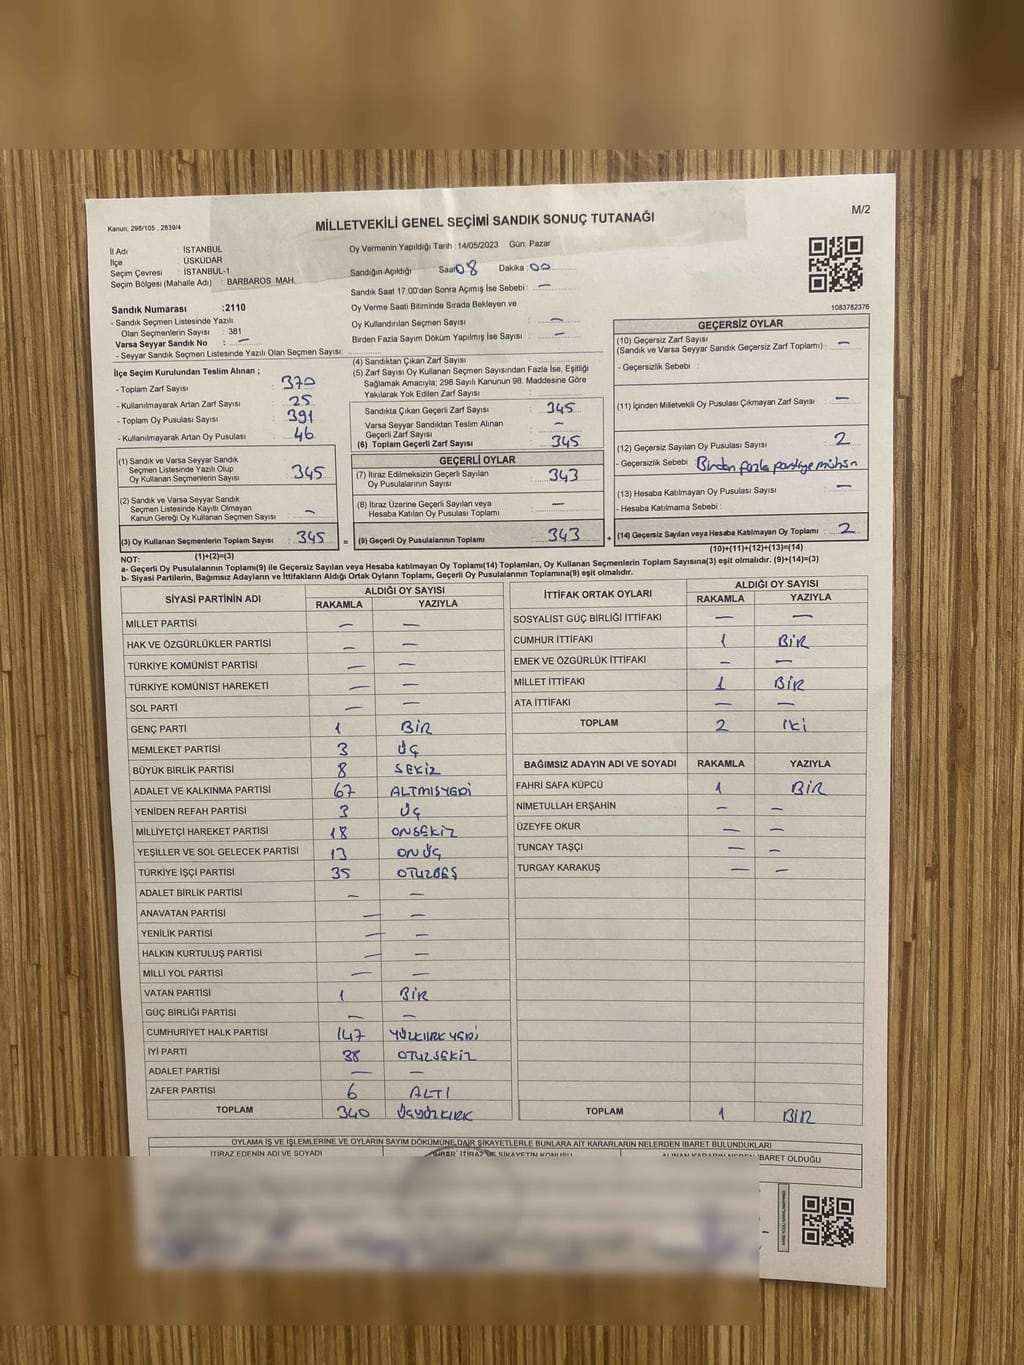 Kanun; 298/105 , 2839/4
MİLLETVEKİLİ GENEL SEÇİMİ SANDIK SONUÇ TUTANAĞI
M/2
İl Adı : İSTANBUL
İlçe : ÜSKÜDAR
Seçim Çevresi : İSTANBUL-1
Seçim Bölgesi (Mahalle Adı) : BARBAROS MAH.
Oy Vermenin Yapıldığı Tarih :14/05/2023 Gün: Pazar
Sandığın Açıldığı Saat 08 Dakika : 00
Sandık Saat 17:00'den Sonra Açımış İse Sebebi : —
Oy Verme Saati Bitiminde Sırada Bekleyen ve
Oy Kullandırılan Seçmen Sayısı : —
Birden Fazla Sayım Döküm Yapılmış İse Sayısı : —
1083782376
Sandık Numarası :2110
- Sandık Seçmen Listesinde Yazılı
Olan Seçmenlerin Sayısı : 381
Varsa Seyyar Sandık No : —
- Seyyar Sandık Seçmen Listesinde Yazılı Olan Seçmen Sayısı :
İlçe Seçim Kurulundan Teslim Alınan ;
- Toplam Zarf Sayısı : 370
- Kullanılmayarak Artan Zarf Sayısı : 25
- Toplam Oy Pusulası Sayısı : 391
- Kullanılmayarak Artan Oy Pusulası : 46
(1) Sandık ve Varsa Seyyar Sandık
Seçmen Listesinde Yazılı Olup
Oy Kullanan Seçmenlerin Sayısı : 345
(2) Sandık ve Varsa Seyyar Sandık
Seçmen Listesinde Kayıtlı Olmayan
Kanun Gereği Oy Kullanan Seçmen Sayısı : —
(3) Oy Kullanan Seçmenlerin Toplam Sayısı : 345 =
(1)+(2)=(3)
(4) Sandıktan Çıkan Zarf Sayısı :
(5) Zarf Sayısı Oy Kullanan Seçmen Sayısından Fazla İse, Eşitliği
Sağlamak Amacıyla; 298 Sayılı Kanunun 98. Maddesine Göre
Yakılarak Yok Edilen Zarf Sayısı :
Sandıkta Çıkan Geçerli Zarf Sayısı : 345
Varsa Seyyar Sandıktan Teslim Alınan
Geçerli Zarf Sayısı : —
(6) Toplam Geçerli Zarf Sayısı : 345
GEÇERLİ OYLAR
(7) İtiraz Edilmeksizin Geçerli Sayılan
Oy Pusulalarının Sayısı : 343
(8) İtiraz Üzerine Geçerli Sayılan veya
Hesaba Katılan Oy Pusulası Toplamı : —
(9) Geçerli Oy Pusulalarının Toplamı : 343 +
GEÇERSİZ OYLAR
(10) Geçersiz Zarf Sayısı
(Sandık ve Varsa Seyyar Sandık Geçersiz Zarf Toplamı) : —
- Geçersizlik Sebebi :
(11) İçinden Milletvekili Oy Pusulası Çıkmayan Zarf Sayısı : —
(12) Geçersiz Sayılan Oy Pusulası Sayısı : 2
- Geçersizlik Sebebi : Birden fazla partiye mühür
(13) Hesaba Katılmayan Oy Pusulası Sayısı : —
- Hesaba Katılmama Sebebi :
(14) Geçersiz Sayılan veya Hesaba Katılmayan Oy Toplamı : 2
(10)+(11)+(12)+(13)=(14)
NOT:
a- Geçerli Oy Pusulalarının Toplamı(9) ile Geçersiz Sayılan veya Hesaba katılmayan Oy Toplamı(14) Toplamları, Oy Kullanan Seçmenlerin Toplam Sayısına(3) eşit olmalıdır. (9)+(14)=(3)
b- Siyasi Partilerin, Bağımsız Adayların ve İttifakların Aldığı Ortak Oyların Toplamı, Geçerli Oy Pusulalarının Toplamına(9) eşit olmalıdır.
SİYASİ PARTİNİN ADI ALDIĞI OY SAYISI
RAKAMLA YAZIYLA
MİLLET PARTİSİ — —
HAK VE ÖZGÜRLÜKLER PARTİSİ — —
TÜRKİYE KOMÜNİST PARTİSİ — —
TÜRKİYE KOMÜNİST HAREKETİ — —
SOL PARTİ — —
GENÇ PARTİ 1 BİR
MEMLEKET PARTİSİ 3 ÜÇ
BÜYÜK BİRLİK PARTİSİ 8 SEKİZ
ADALET VE KALKINMA PARTİSİ 67 ALTMIŞYEDİ
YENİDEN REFAH PARTİSİ 3 ÜÇ
MİLLİYETÇİ HAREKET PARTİSİ 18 ONSEKİZ
YEŞİLLER VE SOL GELECEK PARTİSİ 13 ONÜÇ
TÜRKİYE İŞÇİ PARTİSİ 35 OTUZBEŞ
ADALET BİRLİK PARTİSİ — —
ANAVATAN PARTİSİ — —
YENİLİK PARTİSİ — —
HALKIN KURTULUŞ PARTİSİ — —
MİLLİ YOL PARTİSİ — —
VATAN PARTİSİ 1 BİR
GÜÇ BİRLİĞİ PARTİSİ — —
CUMHURİYET HALK PARTİSİ 147 YÜZKIRKYEDİ
İYİ PARTİ 38 OTUZSEKİZ
ADALET PARTİSİ — —
ZAFER PARTİSİ 6 ALTI
TOPLAM 340 ÜÇYÜZKIRK
İTTİFAK ORTAK OYLARI ALDIĞI OY SAYISI
RAKAMLA YAZIYLA
SOSYALİST GÜÇ BİRLİĞİ İTTİFAKI — —
CUMHUR İTTİFAKI 1 BİR
EMEK VE ÖZGÜRLÜK İTTİFAKI — —
MİLLET İTTİFAKI 1 BİR
ATA İTTİFAKI — —
TOPLAM 2 İKİ
BAĞIMSIZ ADAYIN ADI VE SOYADI RAKAMLA YAZIYLA
FAHRİ SAFA KÜPCÜ 1 BİR
NİMETULLAH ERŞAHİN — —
ÜZEYFE OKUR — —
TUNCAY TAŞÇI — —
TURGAY KARAKUŞ — —
TOPLAM 1 BİR
OYLAMA İŞ VE İŞLEMLERİNE VE OYLARIN SAYIM DÖKÜMÜNE DAİR ŞİKAYETLERLE BUNLARA AİT KARARLARIN NELERDEN İBARET BULUNDUKLARI
İTİRAZ EDENİN ADI VE SOYADI İHBAR İTİRAZ VE ŞİKAYETİN KONUSU ALINAN KARARIN NEDEN İBARET OLDUĞU